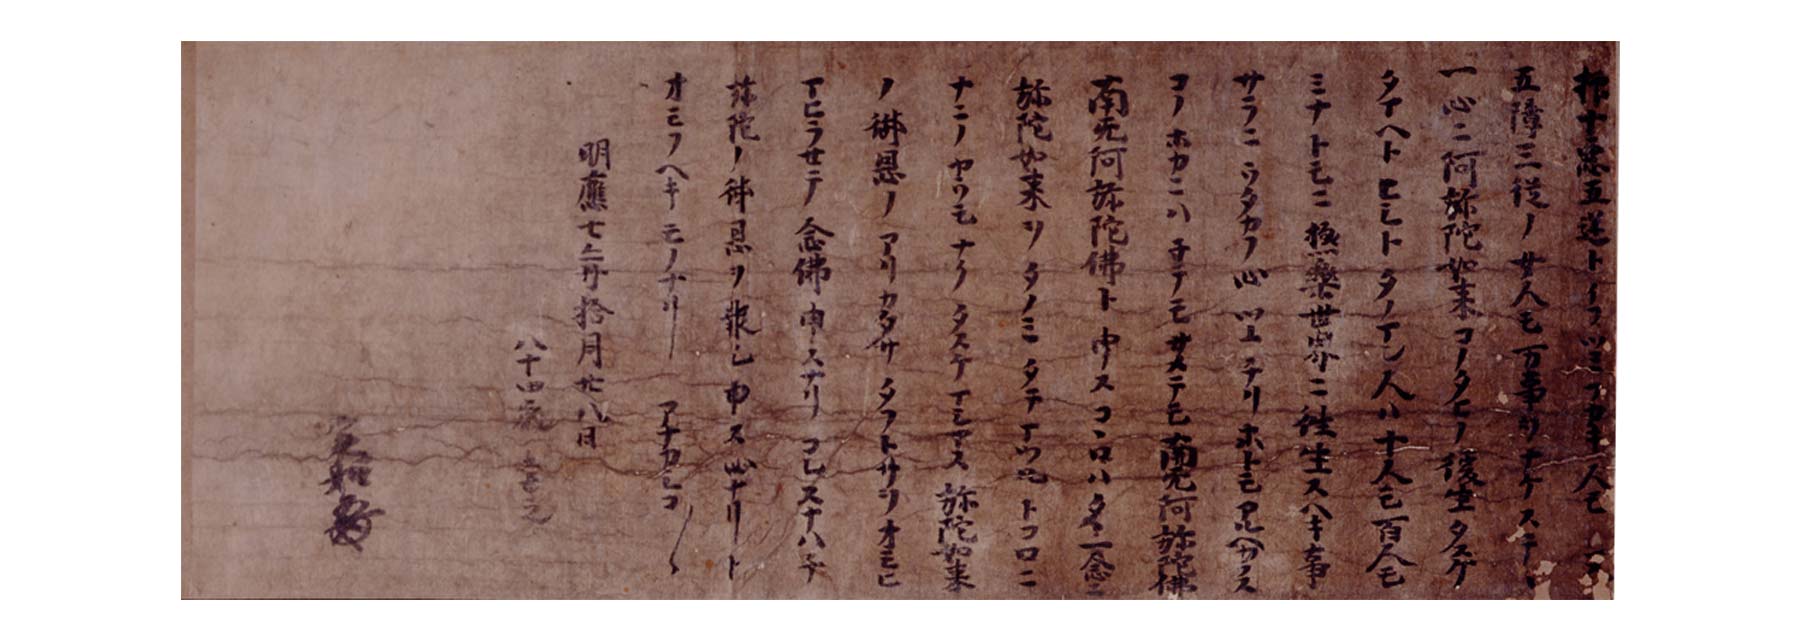 抑十悪五逆トイフツミフカキ人モ
五障三従ノ女人モ万事ヲナケステヽ
一心ニ阿弥陀如来コノタヒノ後生タスケ
タマヘトヒシトタノマン人ハ十人モ百人モ
ミナトモニ極樂世界ニ往生スヘキ事
サラニウタカフ心ツユチリホトモアルヘカラス
コノホカニハネテモサメテモ南无阿弥陀佛
南无阿弥陀佛ト申スコヽロハタヽ一念ニ
弥陀如来ヲタノミタテマツルトコロニ
ナニノヤウモナクタスケマシマス弥陀如来
ノ御恩ノアリカタサタフトサヲオモヒ
マヒラセテ念佛申スナリコレスナハチ
弥陀ノ御恩ヲ報シ申ス心ナリト
オモフヘキモノナリ アナカシコ〳〵
明應七年拾月廿八日
八十四歳 書之